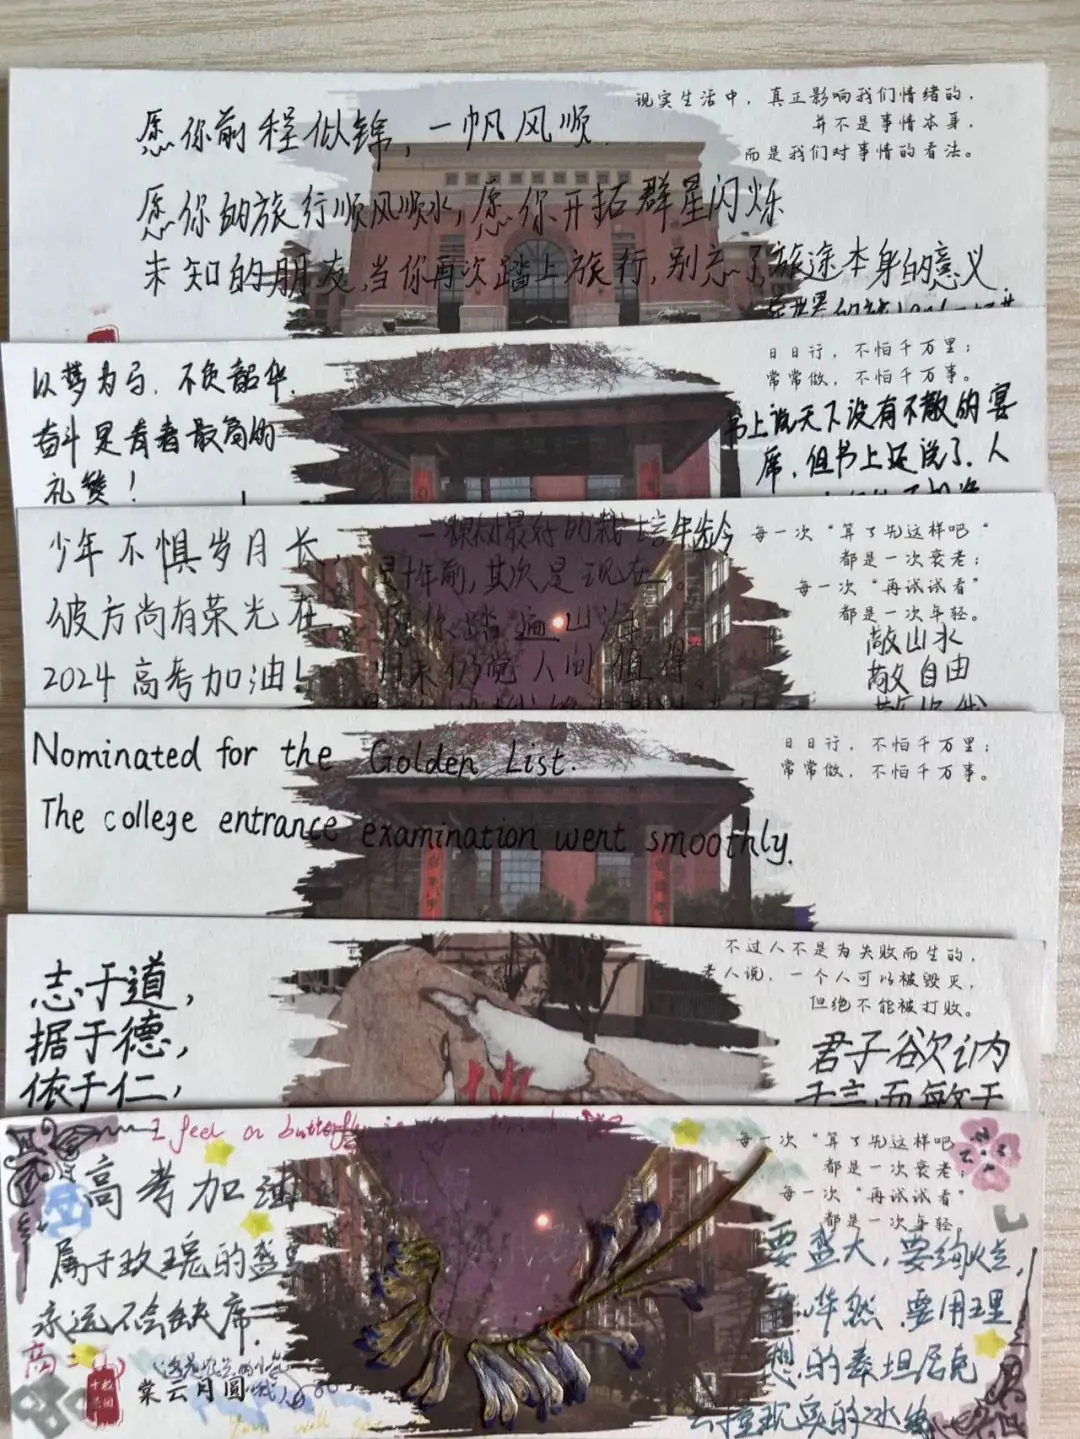 现实生活中，真正影响我们情绪的，
并不是事情本身，
而是我们对事情的看法。
愿你前程似锦，一帆风顺
愿你的旅行顺风顺水，愿你开拓群星闪烁
未知的朋友，当你再次踏上旅行，别忘了旅途本身的意义
日日行，不怕千万里；
常常做，不怕千万事。
以梦为马，不负韶华，
奋斗是青春最高的
礼赞！
书上说天下没有不散的宴
席，但书上还说了，人
每一次“算了先这样吧“
都是一次衰老；
每一次“再试试看”
都是一次年轻。
少年不惧岁月长
彼方尚有荣光在
2024高考加油！
一棵树最好的栽培年龄
是十年前，其次是现在。
愿你踏遍山海
归来仍觉人间值得。
敬山水
敬自由
日日行，不怕千万里；
常常做，不怕千万事。
Nominated for the Golden List.
The college entrance examination went smoothly.
不过人不是为失败而生的，
老人说，一个人可以被毁灭，
但绝不能被打败。
志于道，
据于德，
依于仁，
君子欲讷
于言而敏于
I feel a butterfly in my stomach
每一次“算了先这样吧
都是一次衰老；
每一次“再试试看”
都是一次年轻。
高考加油
属于玫瑰的盛夏
永远不会缺席
棠云月圆
要盛大，要绚烂，
要哗然，要用理
想的泰坦尼克
现实的冰